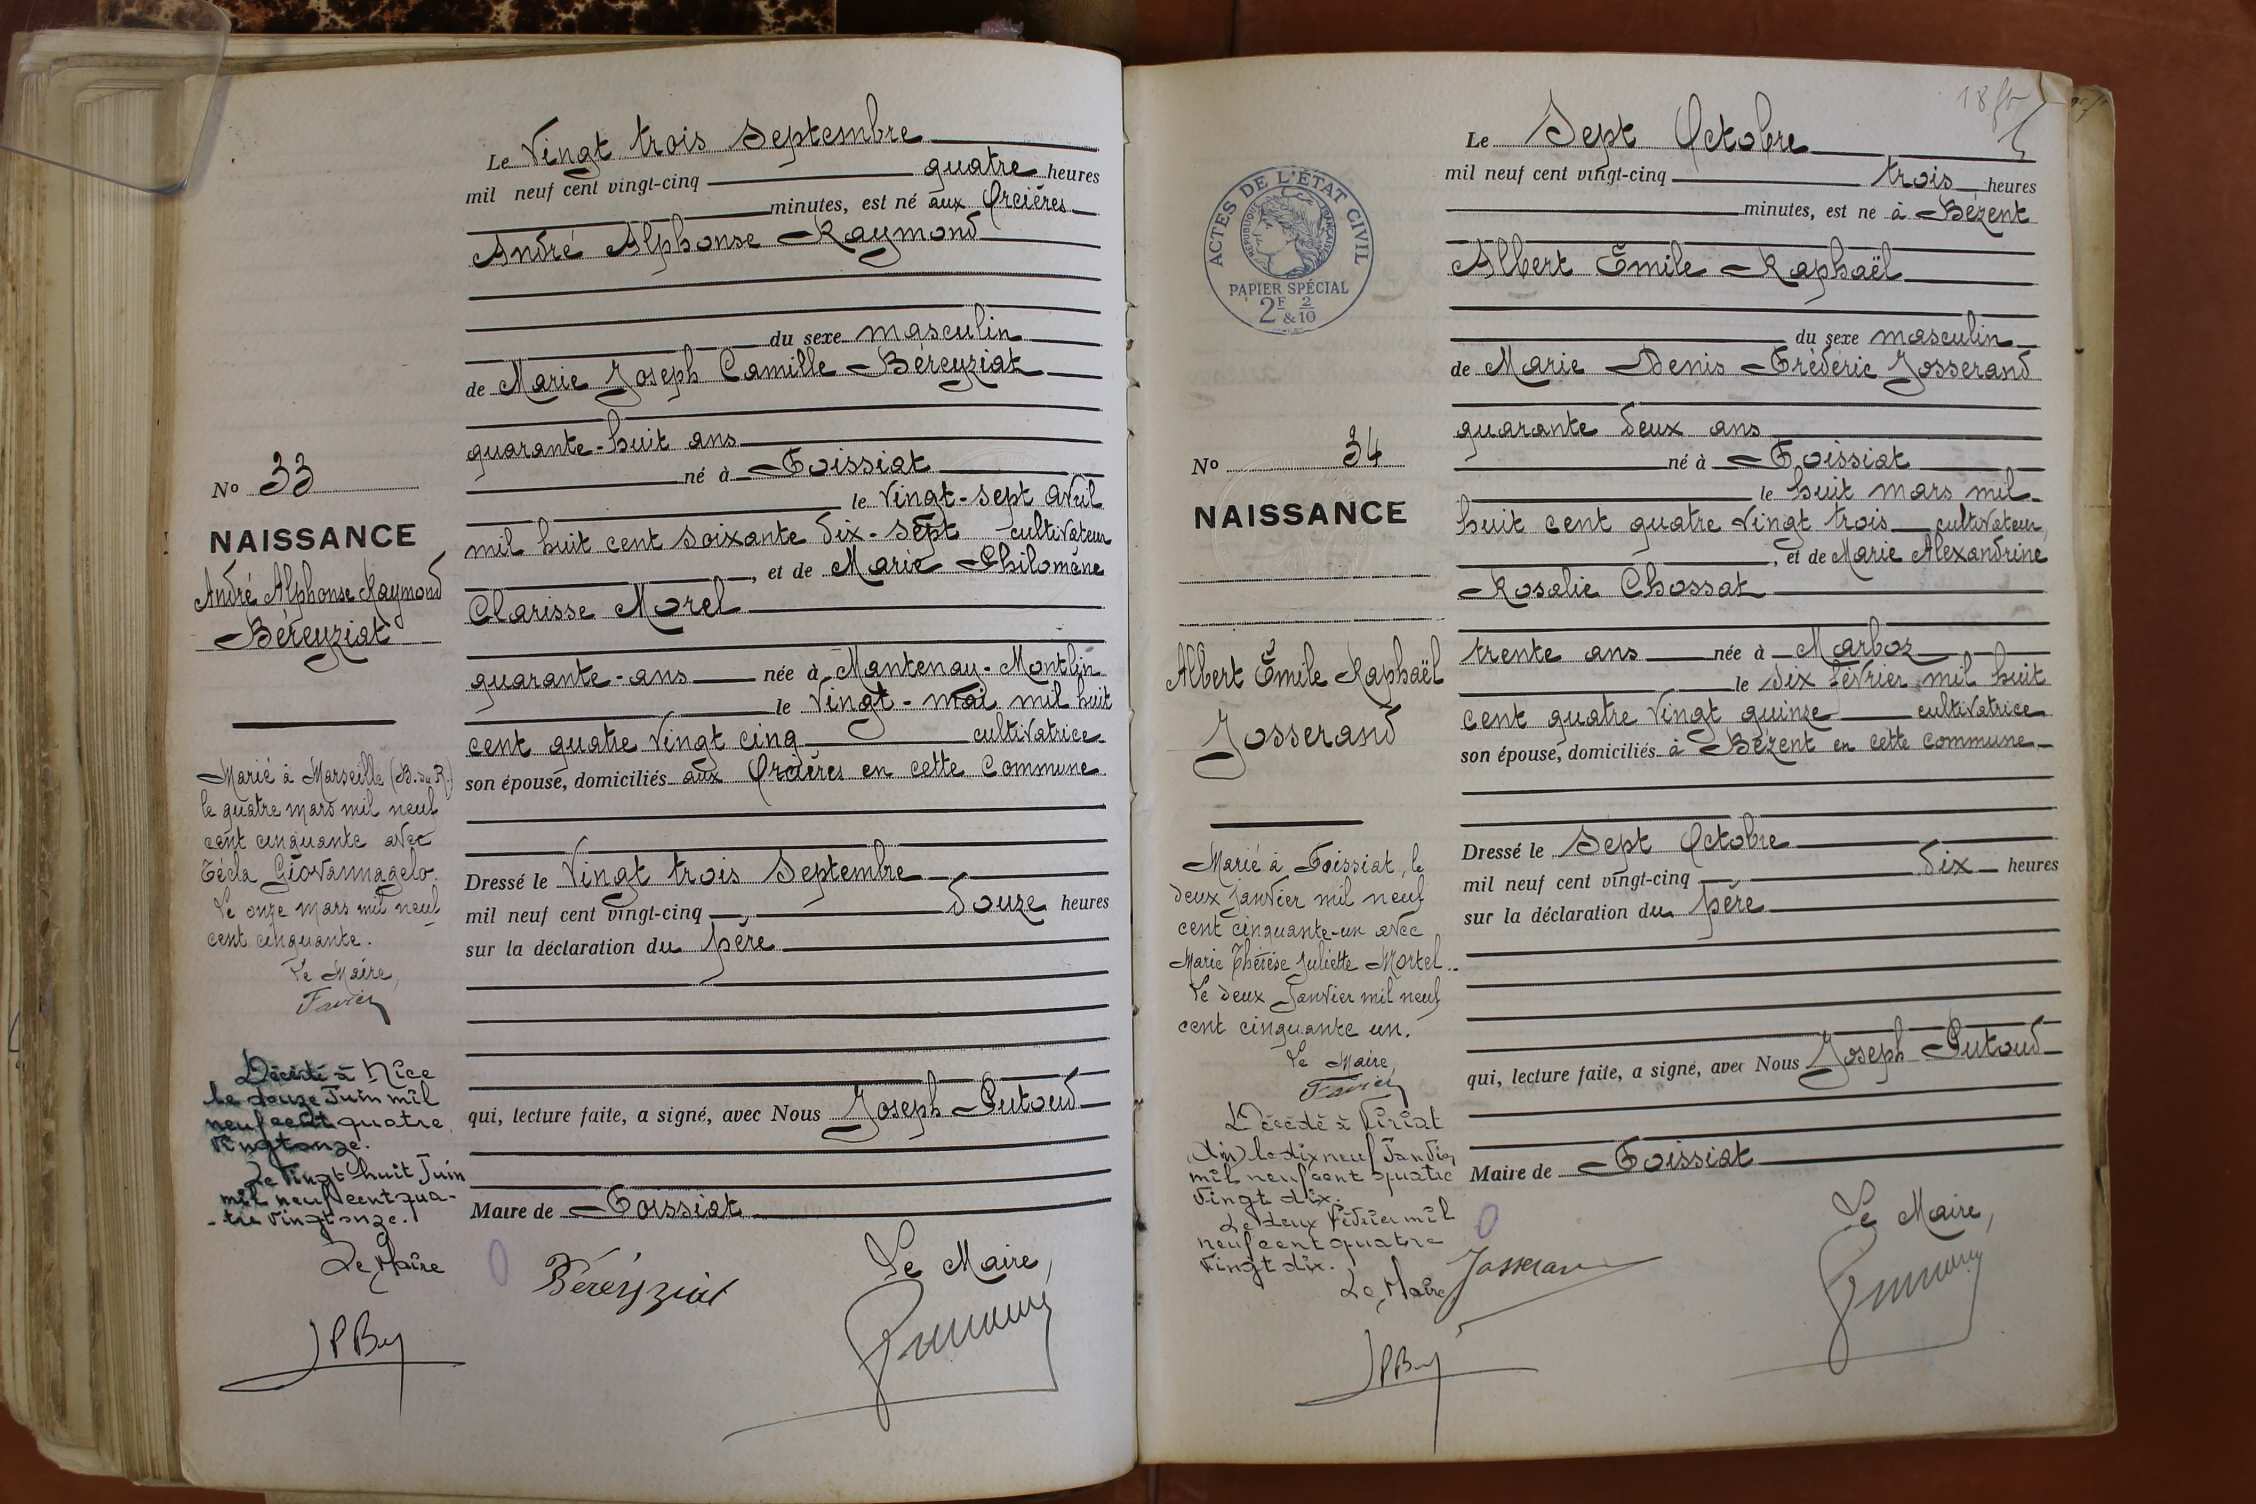 Le Vingt trois Septembre
mil neuf cent vingt-cinq quatre heures
minutes, est né aux Orcières
André Alphonse Raymond
du sexe masculin
de Marie Joseph Camille Béreyziat
quarante-huit ans
né à Foissiat
le vingt-sept avril
mil huit cent soixante dix-sept cultivateur
, et de Marie Philomène
Clarisse Morel
quarante-ans née à Mantenay-Montlin
le vingt-mai mil huit
cent quatre vingt cinq cultivatrice
son épouse, domiciliés aux Orcières en cette Commune
Dressé le Vingt trois Septembre
mil neuf cent vingt-cinq douze heures
sur la déclaration du père
qui, lecture faite, a signé, avec Nous Joseph Putoud
Maire de Foissiat
Le Maire,
Béréyziat
No 33
NAISSANCE
André Alphonse Raymond
Béreyziat
Marié à Marseille (B. du R.)
le quatre mars mil neuf
cent cinquante avec
Técla Giovannagelo.
Le onze mars mil neuf
cent cinquante.
Le Maire,
Favier
Décédé à Nice
le douze Juin mil
neuf cent quatre
vingt onze.
Le vingt huit Juin
mil neuf cent qua-
-tre vingt onze.
Le Maire
JPBuy
18 fo
Le Sept Octobre
mil neuf cent vingt-cinq trois heures
minutes, est né à Bézent
Albert Émile Raphaël
du sexe masculin
de Marie Denis Frédéric Josserand
quarante deux ans
né à Foissiat
le huit mars mil
huit cent quatre vingt trois cultivateur,
, et de Marie Alexandrine
Rosalie Chossat
trente ans née à Marboz
le dix février mil huit
cent quatre vingt quinze cultivatrice
son épouse, domiciliés à Bézent en cette commune
Dressé le Sept Octobre
mil neuf cent vingt-cinq dix heures
sur la déclaration du père
qui, lecture faite, a signé, avec Nous Joseph Putoud
Maire de Foissiat
Le Maire,
Josserand
ACTES DE L'ÉTAT CIVIL
RÉPUBLIQUE FRANÇAISE
PAPIER SPÉCIAL
2F & 2/10
No 34
NAISSANCE
Albert Émile Raphaël
Josserand
Marié à Foissiat, le
deux Janvier mil neuf
cent cinquante-un avec
Marie Thérèse Juliette Mortel.
Le deux Janvier mil neuf
cent cinquante un.
Le Maire,
Favier
Décédé à Viriat
(Ain) le dix neuf Janvier
mil neuf cent quatre
vingt dix.
Le deux Février mil
neuf cent quatre
vingt dix.
Le Maire
JPBuy